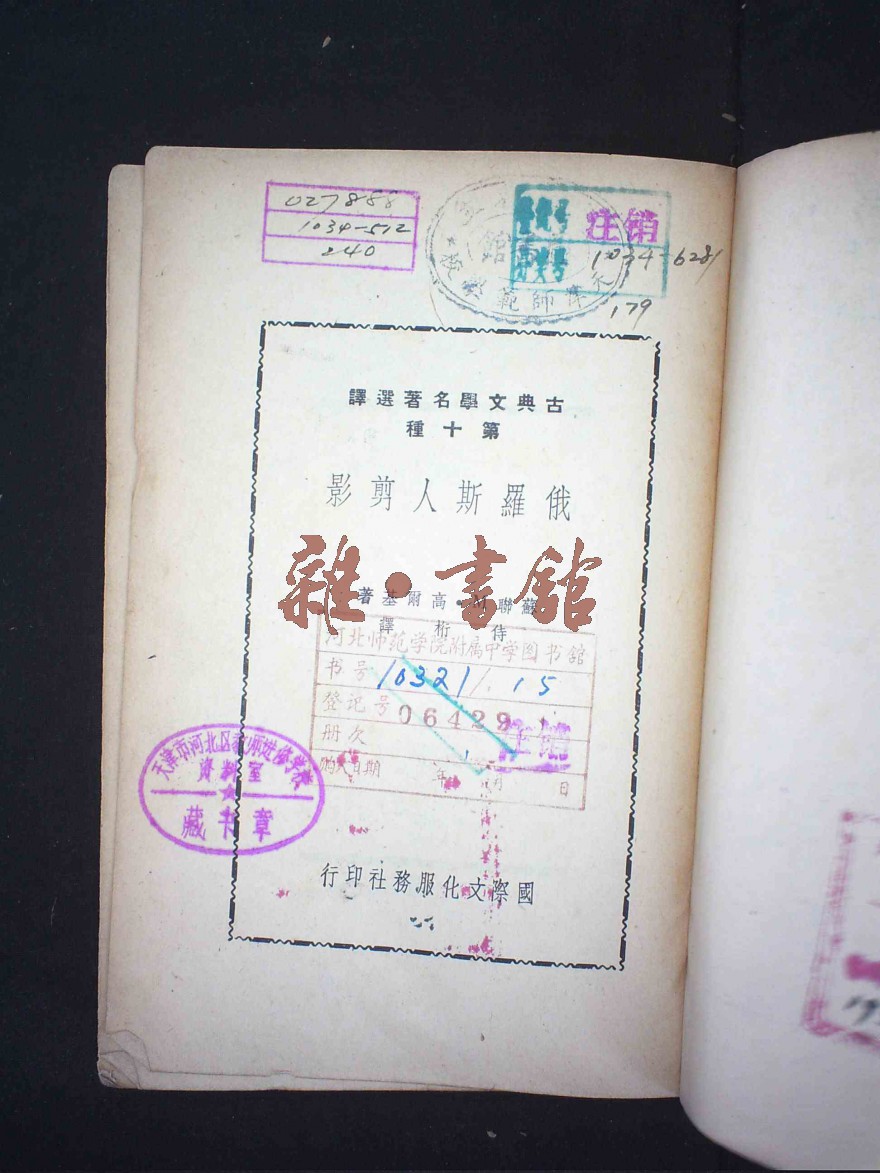 027888
1034-512
240
注销
1034-6281
179
師範
館
古典文學名著選譯
第十種
俄羅斯人剪影
雜·書館
蘇聯 高爾基著
侍桁譯
河北师范学院附属中学图书馆
书号 10321/.15
登记号 06429
注销
册次 1
购入日期 年 月 日
天津市河北区教师进修学校
资料室
藏书章
國際文化服務社印行